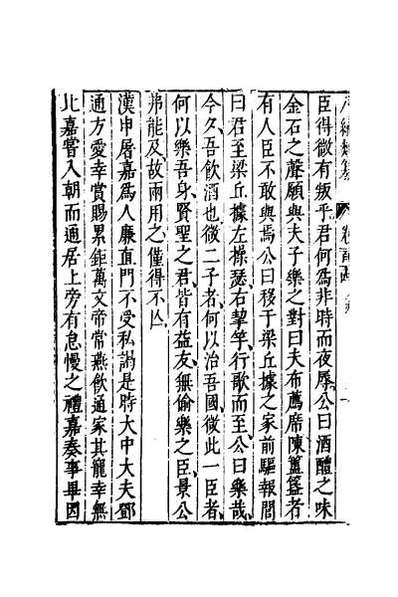 臣得微有叛乎君何爲非時而夜辱公曰酒醴之味
金石之聲願與夫子樂之對曰夫布薦席陳簠簋者
有人臣不敢與焉公曰移于梁丘據之家前驅報閭
曰君至梁丘據左操瑟右挈竽行歌而至公曰樂哉
今夕吾飲酒也微二子者何以治吾國微此一臣者
何以樂吾身賢聖之君皆有益友無偷樂之臣景公
弗能及故兩用之僅得不亡
漢申屠嘉爲人廉直門不受私謁是時大中大夫鄧
通方愛幸賞賜累鉅萬文帝常燕飲通家其寵幸無
北嘉嘗入朝而通居上旁有怠慢之禮嘉奏事畢因